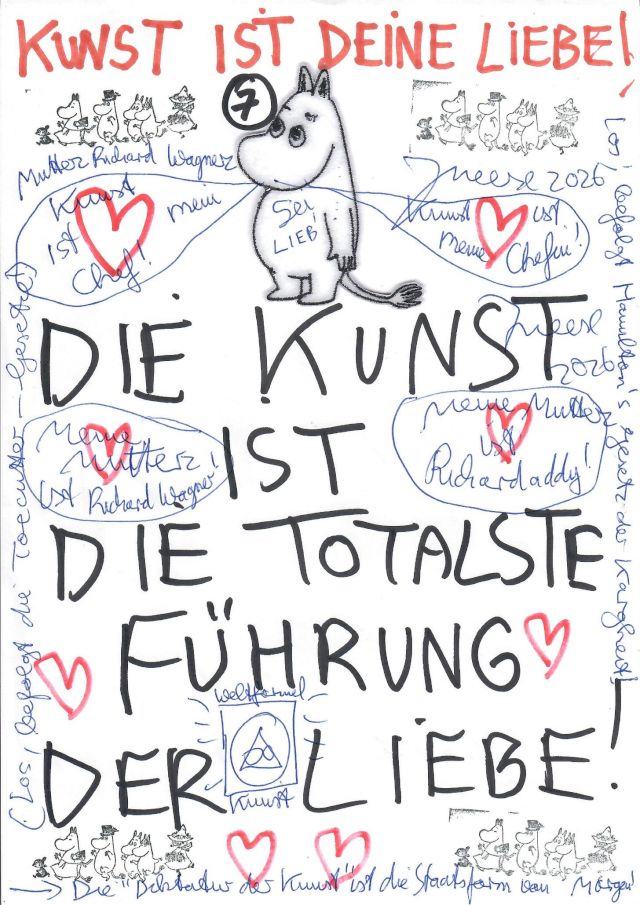 KUNST IST DEINE LIEBE!
7
Mutterz Richard Wagnerz
Kunst
ist mein
Chef!
Sei
LIEB
Meese 2026
Kunst ist
meine Chefin!
DIE KUNST
Meese
2026
Meine
Mutterz
ist Richard Wagner!
IST
Meine Mutterz
ist
Richardaddy!
DIE TOTALSTE
FÜHRUNG
DER LIEBE!
Weltformel
Kunst
(Los, befolgt die Toecutter-Gesetze)
Los, befolgt Hamilton's Gesetz der Kargheit!
→ Die "Diktatur der Kunst" ist die Staatsform von Morgen!